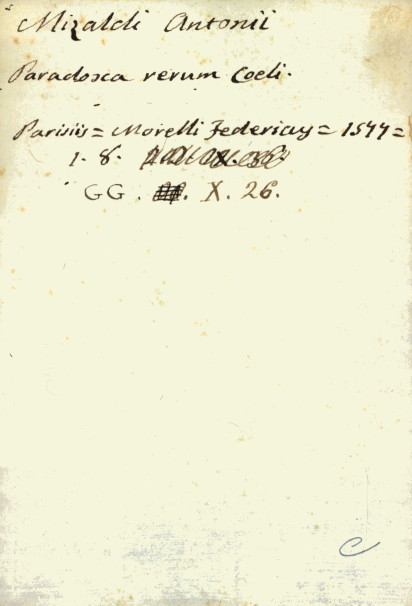 Mizaldi Antonii
Paradoxa rerum Coeli.
Parisiis = Morelli Federicus = 1577 =
1. 8.
GG. X. 26.
C